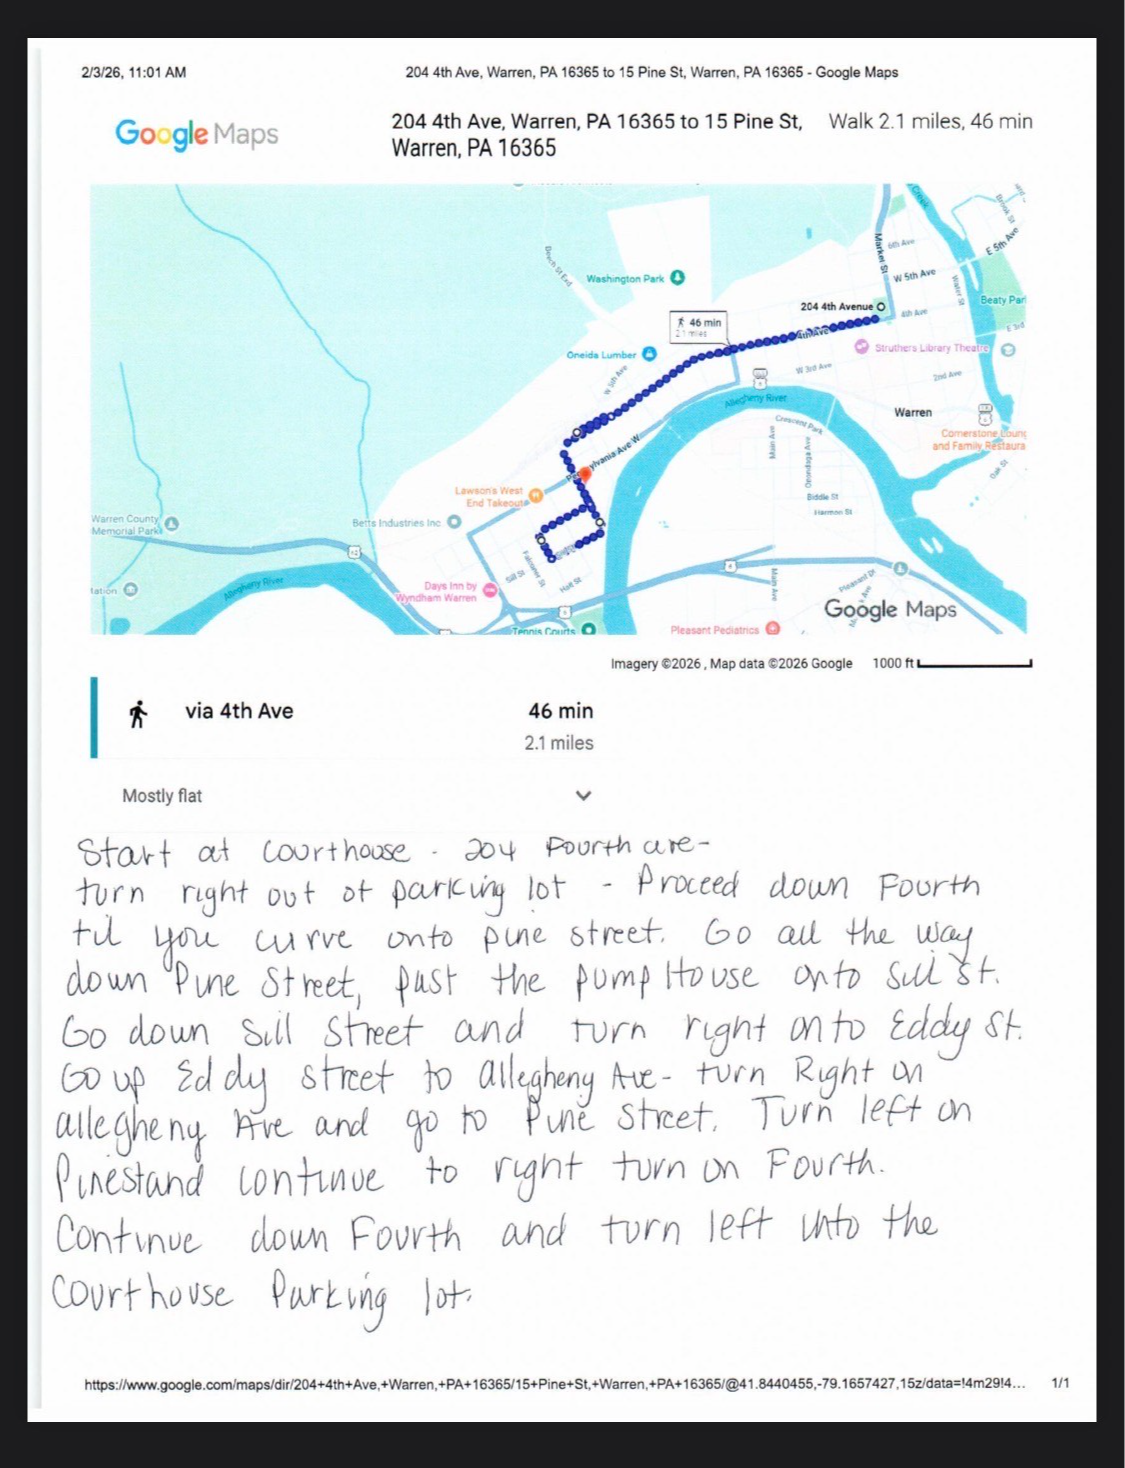 2/3/26, 11:01 AM
204 4th Ave, Warren, PA 16365 to 15 Pine St, Warren, PA 16365 - Google Maps
Google Maps
204 4th Ave, Warren, PA 16365 to 15 Pine St,
Warren, PA 16365
Walk 2.1 miles, 46 min
Creek
Brook St
Market St
6th Ave
E 5th Ave
Beech St Ext
Washington Park
W 5th Ave
Water St
Beaty Par
204 4th Avenue
4th Ave
46 min
2.1 miles
4th Ave
E 3rd
Struthers Library Theatre
Oneida Lumber
W 5th Ave
W 3rd Ave
2nd Ave
Allegheny River
Warren
Crescent Park
Cornerstone Loung
and Family Restaura
Main Ave
Onondaga Ave
Oak St
Lawson's West
End Takeout
Biddle St
Harmon St
Warren County
Memorial Park
Betts Industries Inc.
62
6
Falconer St
Sill St
Holt St
Main Ave
Pleasant Dr
tation
Allegheny River
Days Inn by
Wyndham Warren
6
Google Maps
Tennis Courts
Pleasant Pediatrics
Imagery ©2026 , Map data ©2026 Google
1000 ft
via 4th Ave
46 min
2.1 miles
Mostly flat
Start at Courthouse - 204 Fourth ave-
turn right out of parking lot - Proceed down Fourth
til you curve onto pine street. Go all the way
down Pine Street, past the pump House onto Sill St.
Go down Sill Street and turn right onto Eddy St.
Go up Eddy street to Allegheny Ave- turn Right on
allegheny Ave and go to Pine Street. Turn left on
Pinestand continue to right turn on Fourth.
Continue down Fourth and turn left into the
Courthouse Parking lot.
https://www.google.com/maps/dir/204+4th+Ave,+Warren,+PA+16365/15+Pine+St,+Warren,+PA+16365/@41.8440455,-79.1657427,15z/data=!4m29!4... 1/1